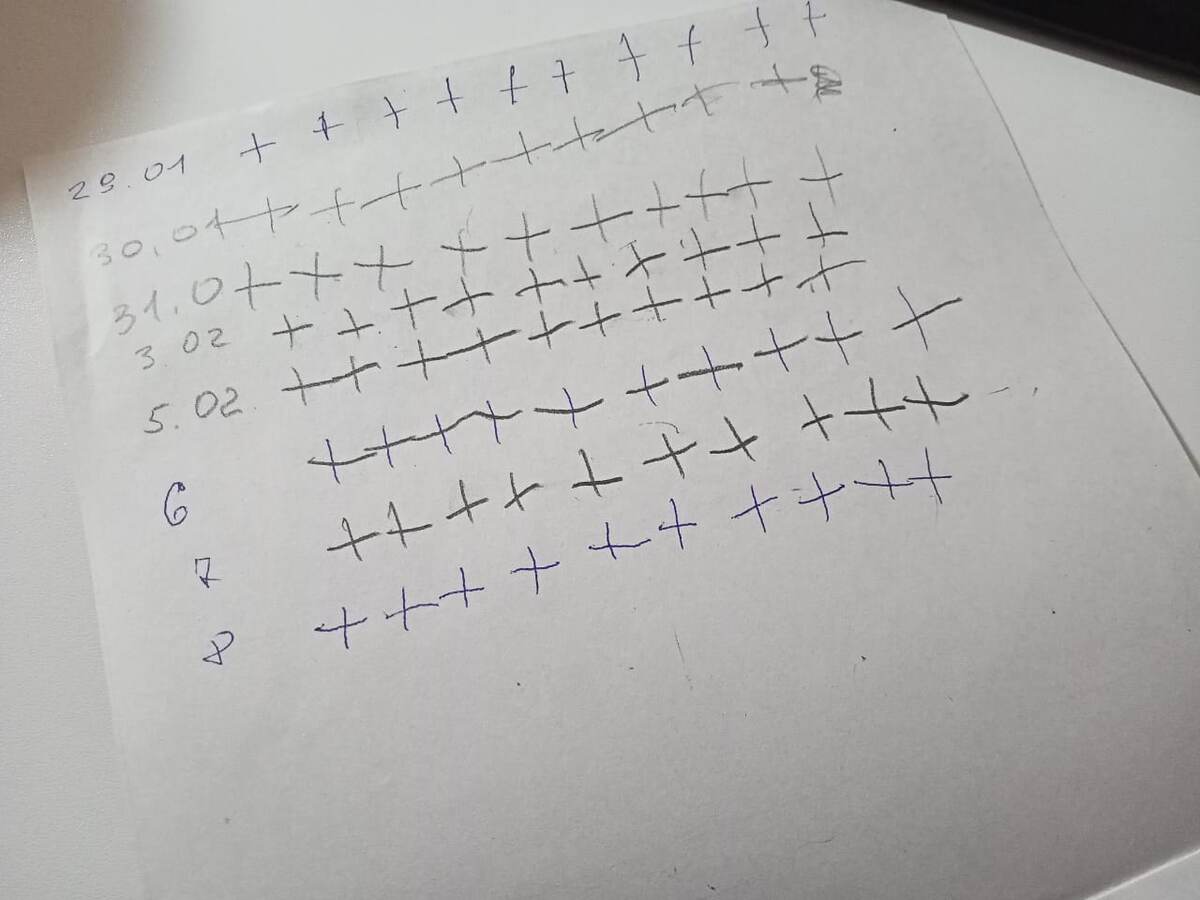 29.01 + + + + + + + + + +
30.01 + + + + + + + + +
31.0 + + + + + + + + + +
3.02 + + + + + + + + + +
5.02 + + + + + + + + + +
6 + + + + + + + + + +
7 + + + + + + + + + +
8 + + + + + + + + + +